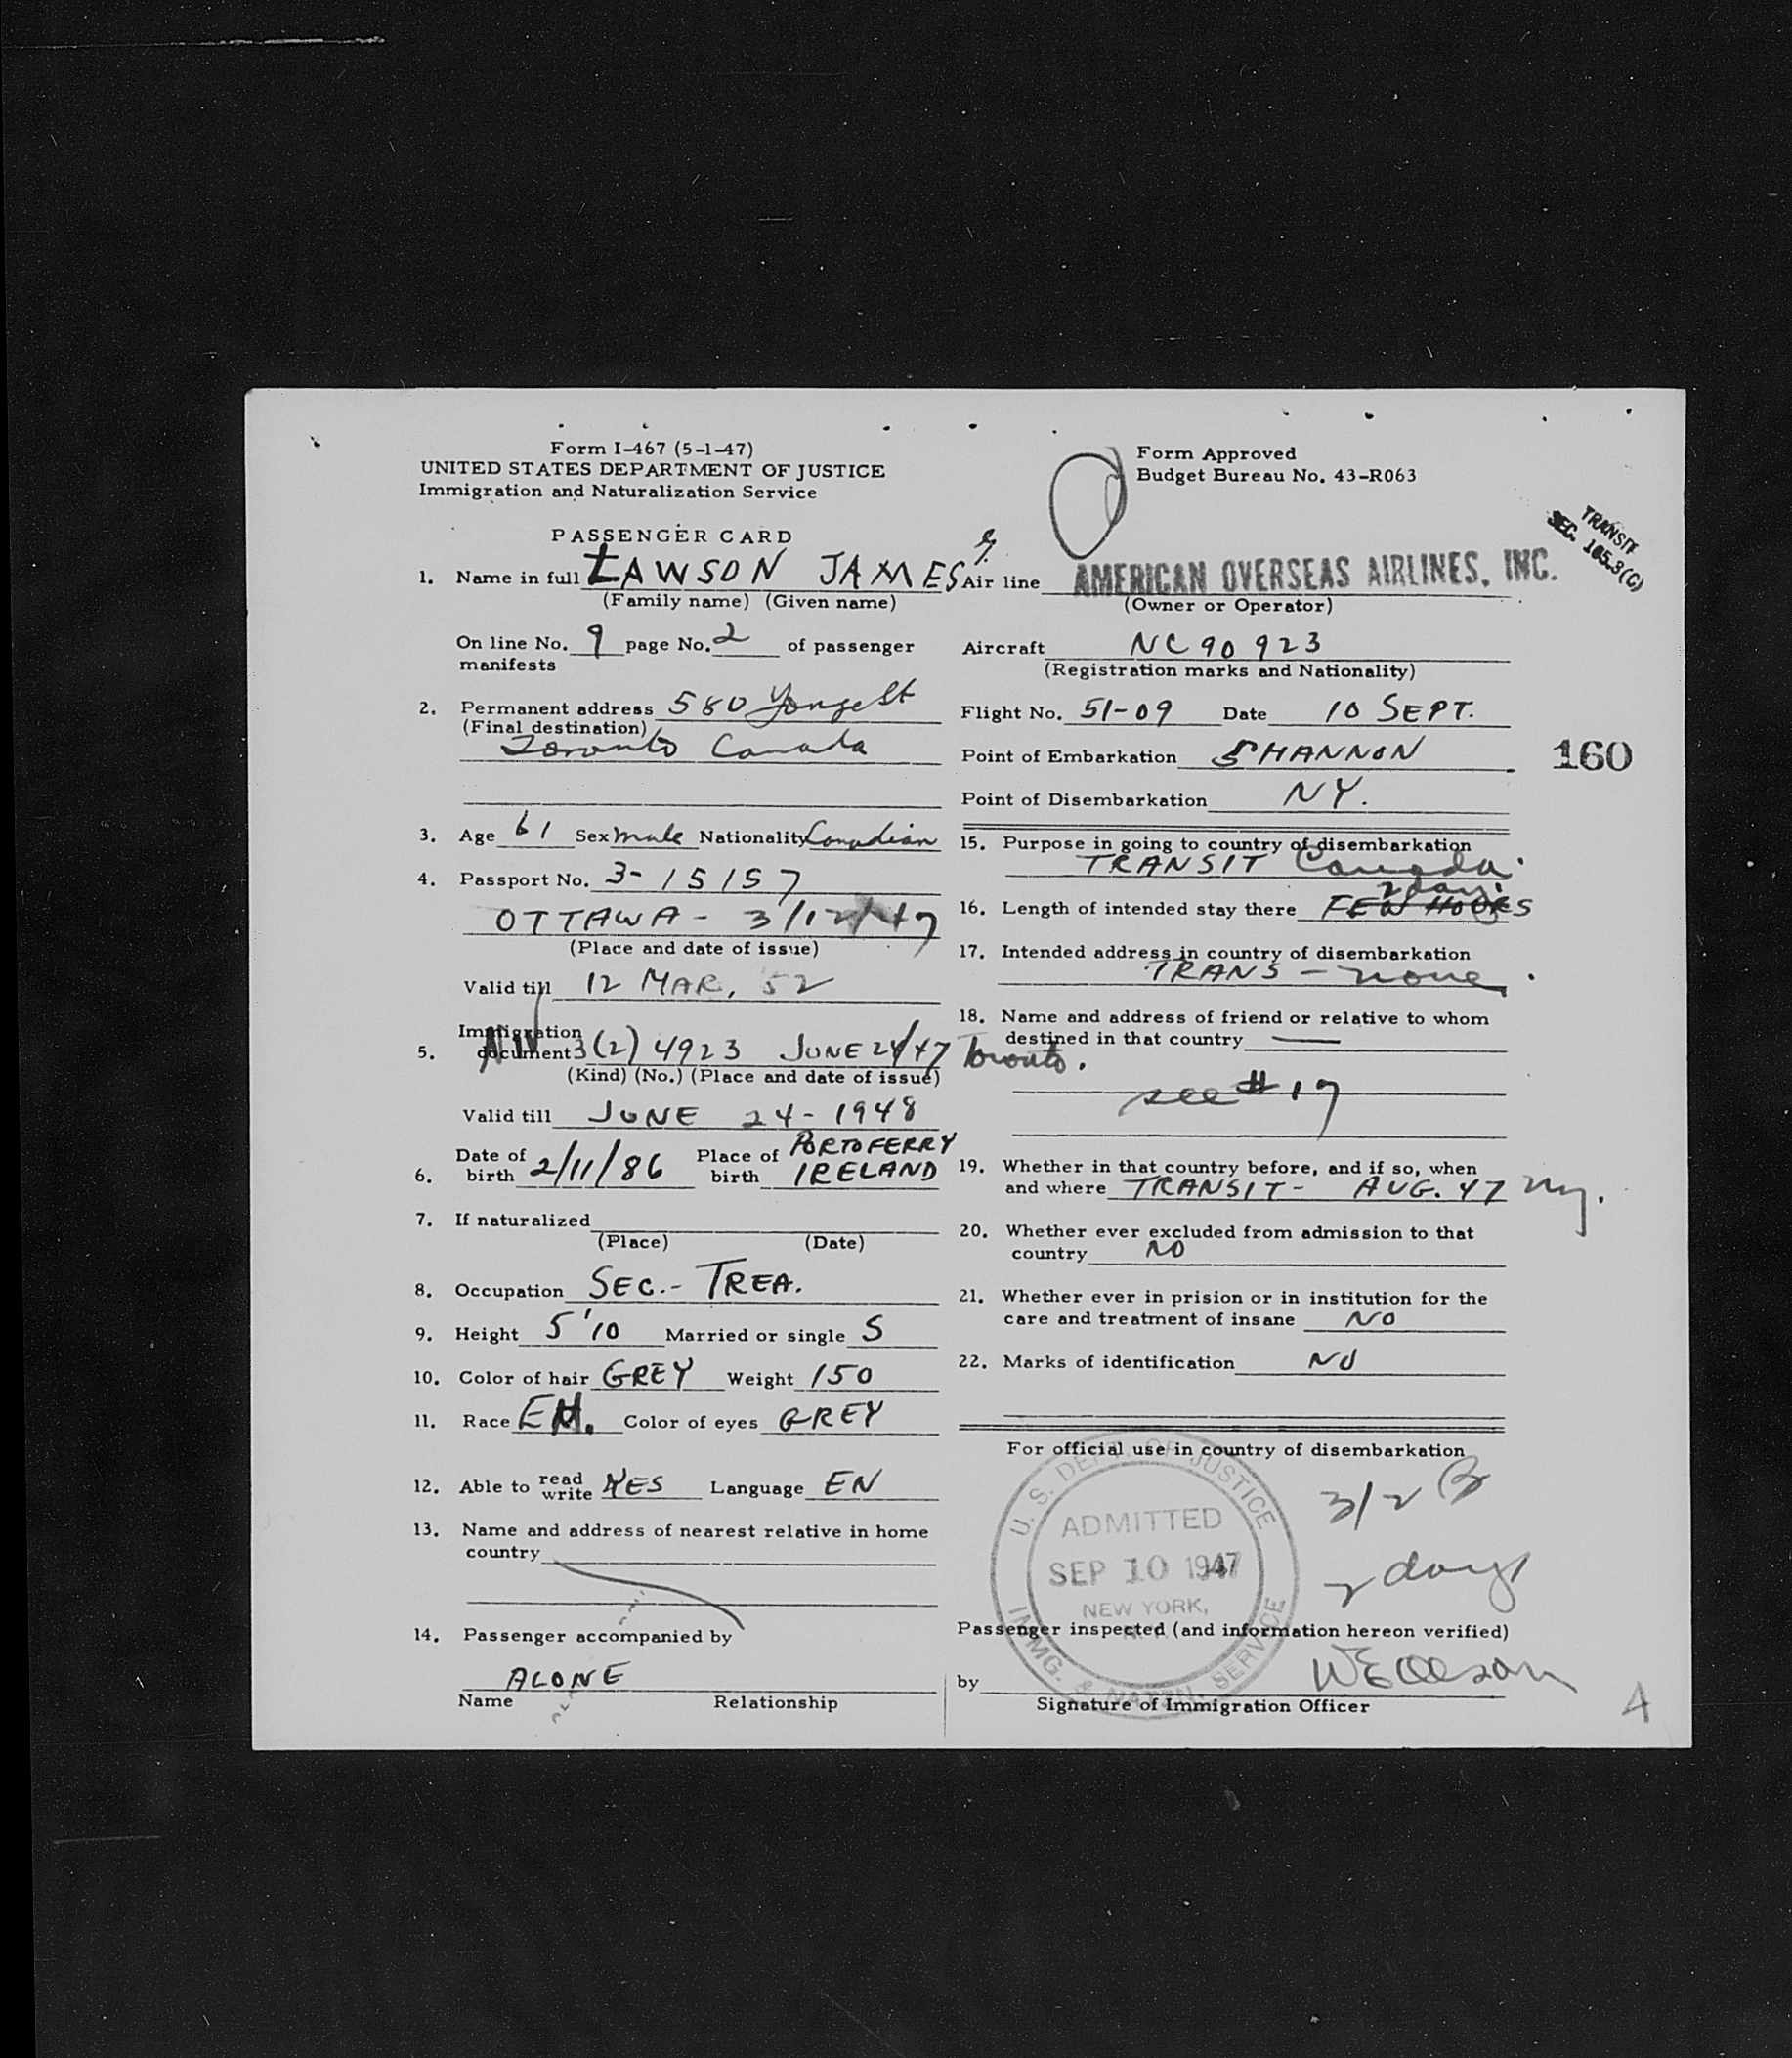 Form I-467 (5-1-47)
UNITED STATES DEPARTMENT OF JUSTICE
Immigration and Naturalization Service
PASSENGER CARD
1. Name in full LAWSON JAMES
(Family name) (Given name)
On line No. 9 page No. 2 of passenger
manifests
2. Permanent address 580 Yonge St
(Final destination)
Toronto Canada
3. Age 61 Sex male Nationality Canadian
4. Passport No. 3-15157
OTTAWA - 3/12/47
(Place and date of issue)
Valid till 12 MAR. 52
5. Immigration
document 3(2) 4923 JUNE 24/47 Toronto.
(Kind) (No.) (Place and date of issue)
Valid till JUNE 24-1948
6. Date of birth 2/11/86 Place of birth PORTOFERRY
IRELAND
7. If naturalized
(Place) (Date)
8. Occupation SEC.- TREA.
9. Height 5'10 Married or single S
10. Color of hair GREY Weight 150
11. Race Color of eyes GREY
12. Able to read write YES Language EN
13. Name and address of nearest relative in home
country
14. Passenger accompanied by
ALONE
Name Relationship
Form Approved
Budget Bureau No. 43-R063
TRANSIT
SEC. 165.3(C)
Air line AMERICAN OVERSEAS AIRLINES, INC.
(Owner or Operator)
Aircraft NC 90923
(Registration marks and Nationality)
Flight No. 51-09 Date 10 SEPT.
Point of Embarkation SHANNON
160
Point of Disembarkation NY.
15. Purpose in going to country of disembarkation
TRANSIT Canada.
2 days
16. Length of intended stay there FEW HOURS
17. Intended address in country of disembarkation
TRANS - none.
18. Name and address of friend or relative to whom
destined in that country —
see #17
19. Whether in that country before, and if so, when
and where TRANSIT - AUG. 47 NY.
20. Whether ever excluded from admission to that
country NO
21. Whether ever in prision or in institution for the
care and treatment of insane NO
22. Marks of identification NO
For official use in country of disembarkation
U. S. DEPT. OF JUSTICE
ADMITTED
SEP 10 1947
NEW YORK, N. Y.
IMMG. & NATZN. SERVICE
3/2
2 days
Passenger inspected (and information hereon verified)
by
Signature of Immigration Officer